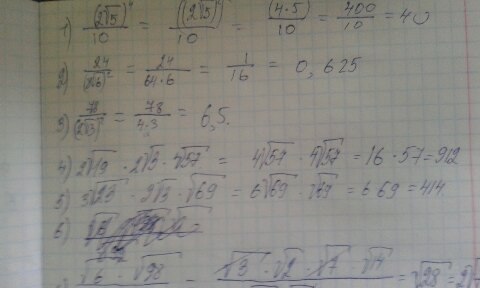 1) (2√5)⁴/10 = ((2√5)²)²/10 = (4·5)²/10 = 400/10 = 40
2) 24/(8√6)² = 24/64·6 = 1/16 = 0,625
3) 78/(2√3)² = 78/4·3 = 6,5.
4) 2√19 · 2√3 · 4√57 = 4√57 · 4√57 = 16 · 57 = 912
5) 3√23 · 2√3 · √69 = 6√69 · √69 = 6·69 = 414.
6)
√6 · √98 = √3 · √2 · √7 · √14 = √28 = 2√